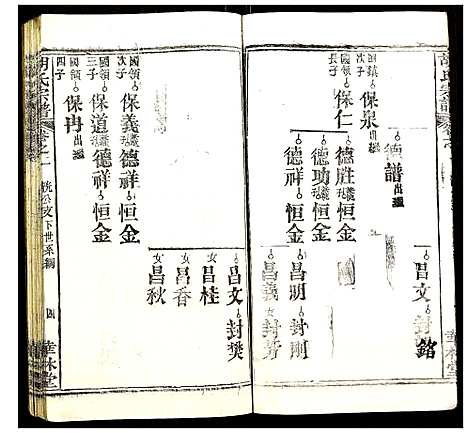 胡氏宗譜
德譜出繼
昌文 封銘
國鎮次子 保泉出繼
國領長子 保仁 德胜 恒金
德功 恒金
德祥 恒金
昌明 封剛
昌義
華林堂
國領次子 保義 德祥 恒金
昌文 封樊
女 昌桂
女 昌香
女 昌秋
國領三子 保道 德祥 恒金
國領四子 保冉出繼
胡氏宗譜 卷之一 统公支下世系綱 四 華林堂